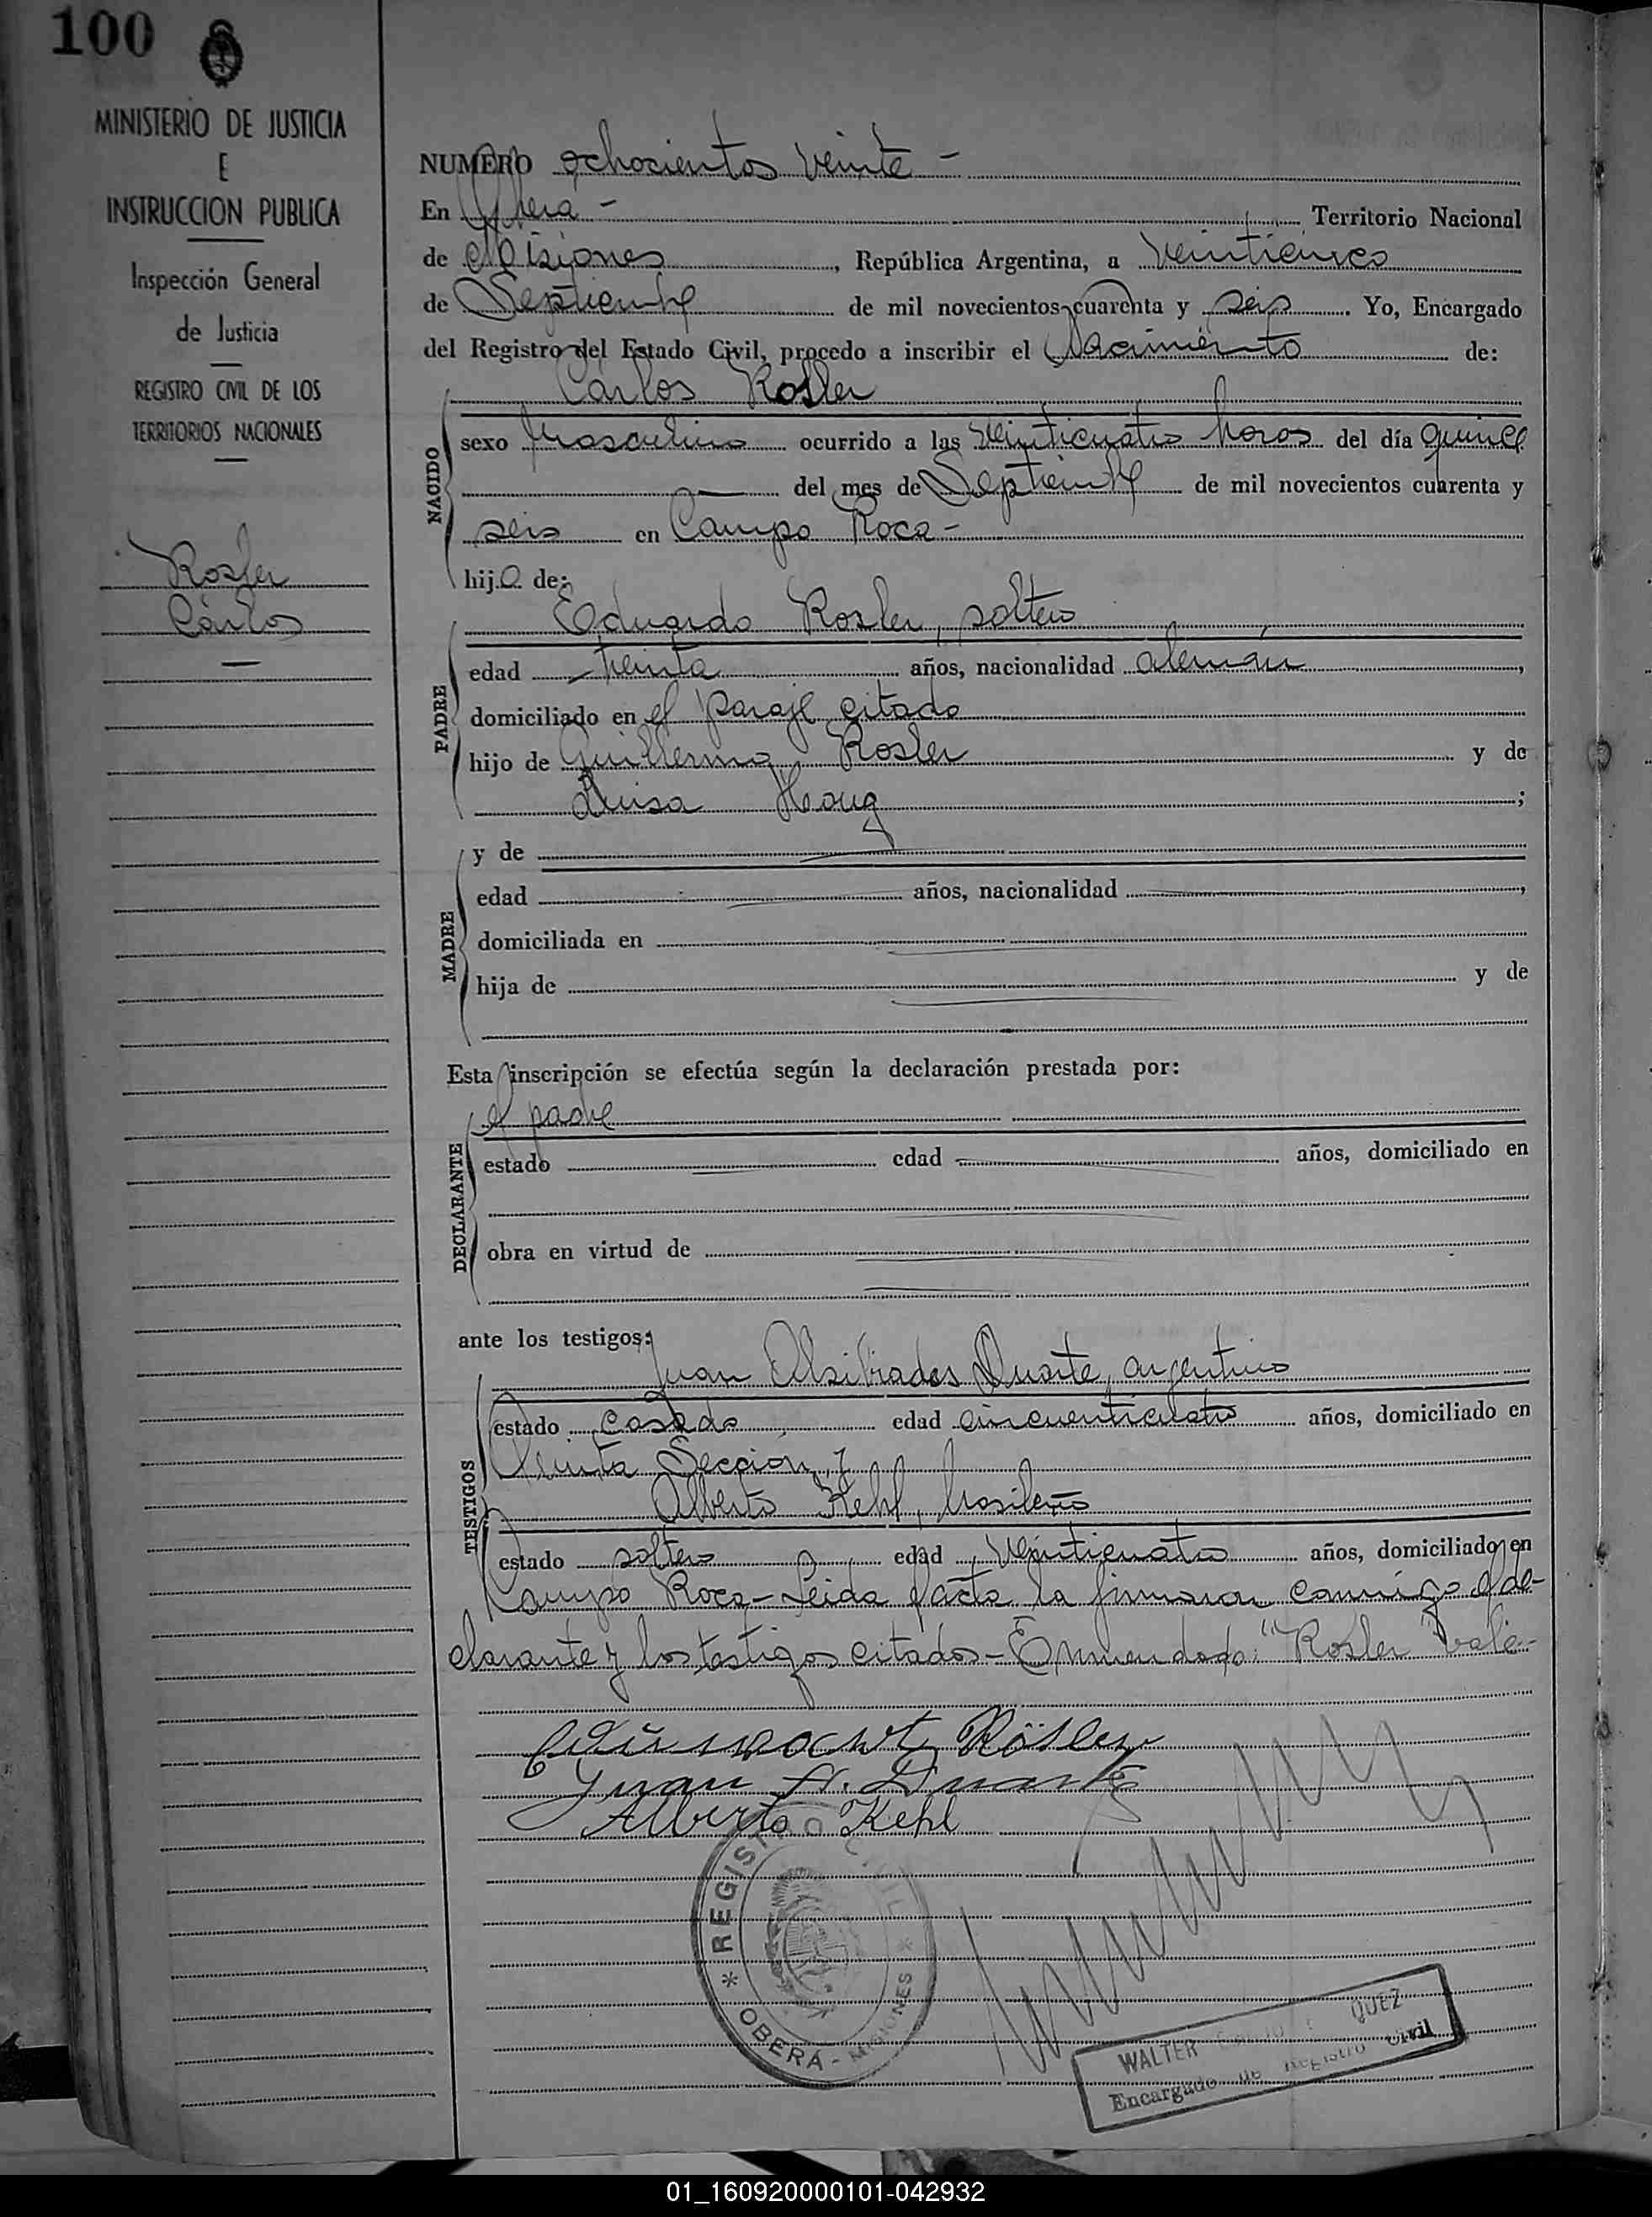 100
MINISTERIO DE JUSTICIA
E
INSTRUCCION PUBLICA
Inspección General
de Justicia
REGISTRO CIVIL DE LOS
TERRITORIOS NACIONALES
Rosler
Cárlos
NUMERO ochocientos veinte -
En Oberá - Territorio Nacional
de Misiones, República Argentina, a veinticinco
de Septiembre de mil novecientos cuarenta y seis. Yo, Encargado
del Registro del Estado Civil, procedo a inscribir el Nacimiento de:
Cárlos Rosler
NACIDO
sexo masculino ocurrido a las veinticuatro horas del día quince
del mes de Septiembre de mil novecientos cuarenta y
seis en Campo Roca -
hijo de:
Eduardo Rosler, soltero
PADRE
edad treinta años, nacionalidad alemán,
domiciliado en el paraje citado
hijo de Guillermo Rosler y de
Luisa Houg;
MADRE
y de
edad años, nacionalidad,
domiciliada en
hija de y de
Esta inscripción se efectúa según la declaración prestada por:
el padre
DECLARANTE
estado edad años, domiciliado en
obra en virtud de
ante los testigos:
Juan Alsibiades Duarte, argentino
TESTIGOS
estado casado edad cincuenticuatro años, domiciliado en
Quinta Sección, y
Alberto Kehl, brasileño
estado soltero edad veinticuatro años, domiciliado en
Campo Roca - Leída el acta la firmaron conmigo el de-
clarante y los testigos citados - Enmendado: "Rosler" vale -
Rösler
Juan A. Duarte
Alberto Kehl
* REGISTRO CIVIL *
OBERÁ - MISIONES
WALTER QUEZ
Encargado de Registro Civil
01_160920000101-042932